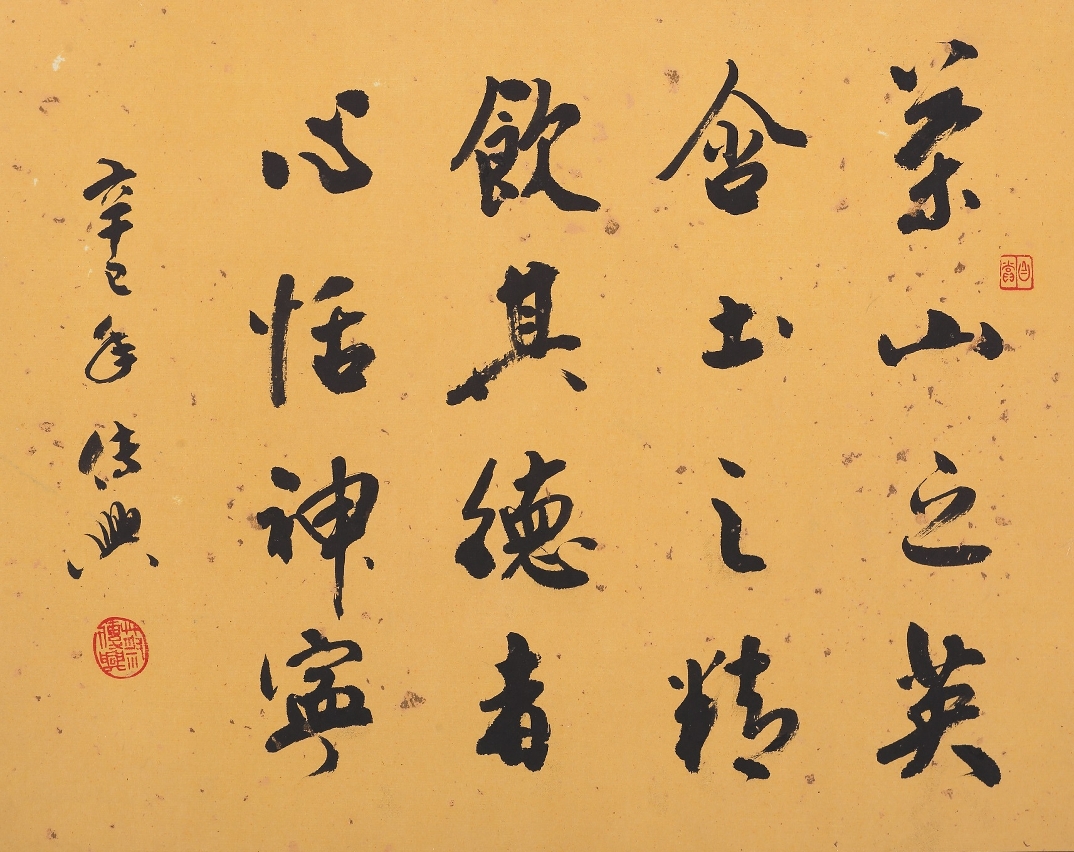 茶山之英
含土之精
飲其德者
心恬神寧
辛巳年 傳興